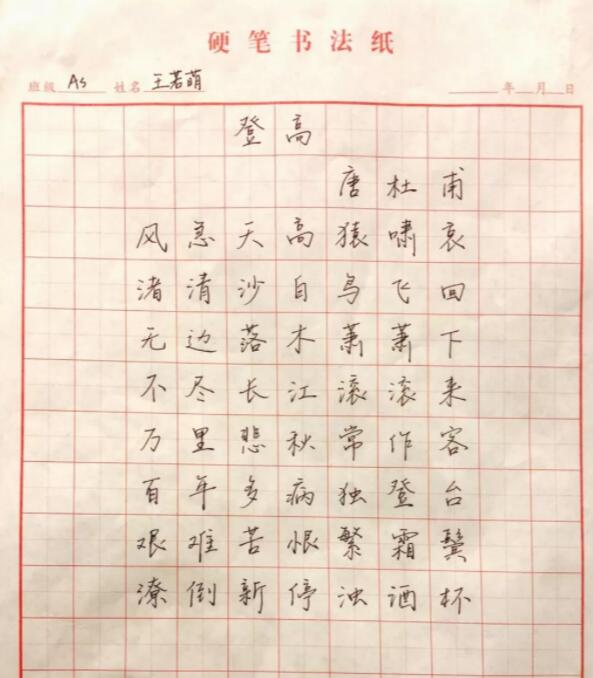 硬笔书法纸
班级 A5 姓名 王若萌 年 月 日
登高
唐杜甫
风急天高猿啸哀
渚清沙白鸟飞回
无边落木萧萧下
不尽长江滚滚来
万里悲秋常作客
百年多病独登台
艰难苦恨繁霜鬓
潦倒新停浊酒杯